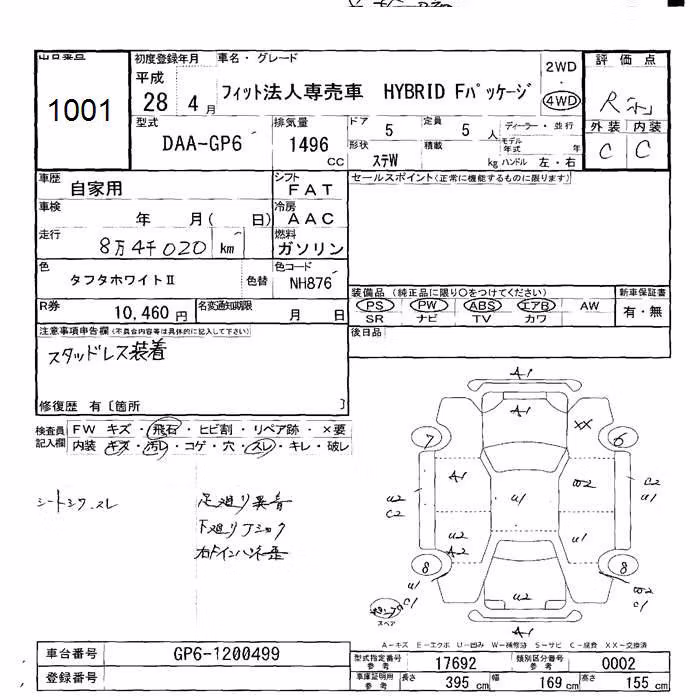 出品番号
1001
初度登録年月 車名・グレード
平成 28 4 月
フィット法人専売車 HYBRID Fパッケージ
2WD
・
4WD
評価点
R
外装 内装
C C
型式
DAA-GP6
排気量
1496 CC
ドア 5 定員 5 人
ディーラー・並行
形状 ステW
積載 kg
モデル年式 年
ハンドル 左・右
車歴 自家用
シフト FAT
セールスポイント(正常に機能するものに限ります)
車検 年 月( 日)
冷房 AAC
走行 8万4千020 km
燃料 ガソリン
色 タフタホワイトⅡ 色替
色コード NH876
装備品 (純正品に限り○をつけてください)
PS PW ABS エアB AW
SR ナビ TV カワ
新車保証書
有・無
R券 10,460円
名変通知期限 月 日
後日品
注意事項申告欄(不具合内容等は具体的に記入して下さい)
スタッドレス装着
修復歴 有〔箇所 〕
検査員記入欄
FW キズ・飛石・ヒビ割・リペア跡・×要
内装・キズ・汚レ・コゲ・穴・スレ・キレ・破レ
シートシワ.スレ
足廻り異音
下廻りJシャック
A1
A1
XX
7
6
A1
W2
U2
C2
U1
C2
U1
U2
A2
U1
8
8
U1
C1
U2
W2
C1
スペア
A1
A-キズ E-エクボ U-凹み W-補修跡 S-サビ C-腐食 XX-交換済
車台番号 GP6-1200499
登録番号
型式指定番号 参考 17692
類別区分番号 参考 0002
車庫証明用 参考 長さ 395 cm 幅 169 cm 高さ 155 cm